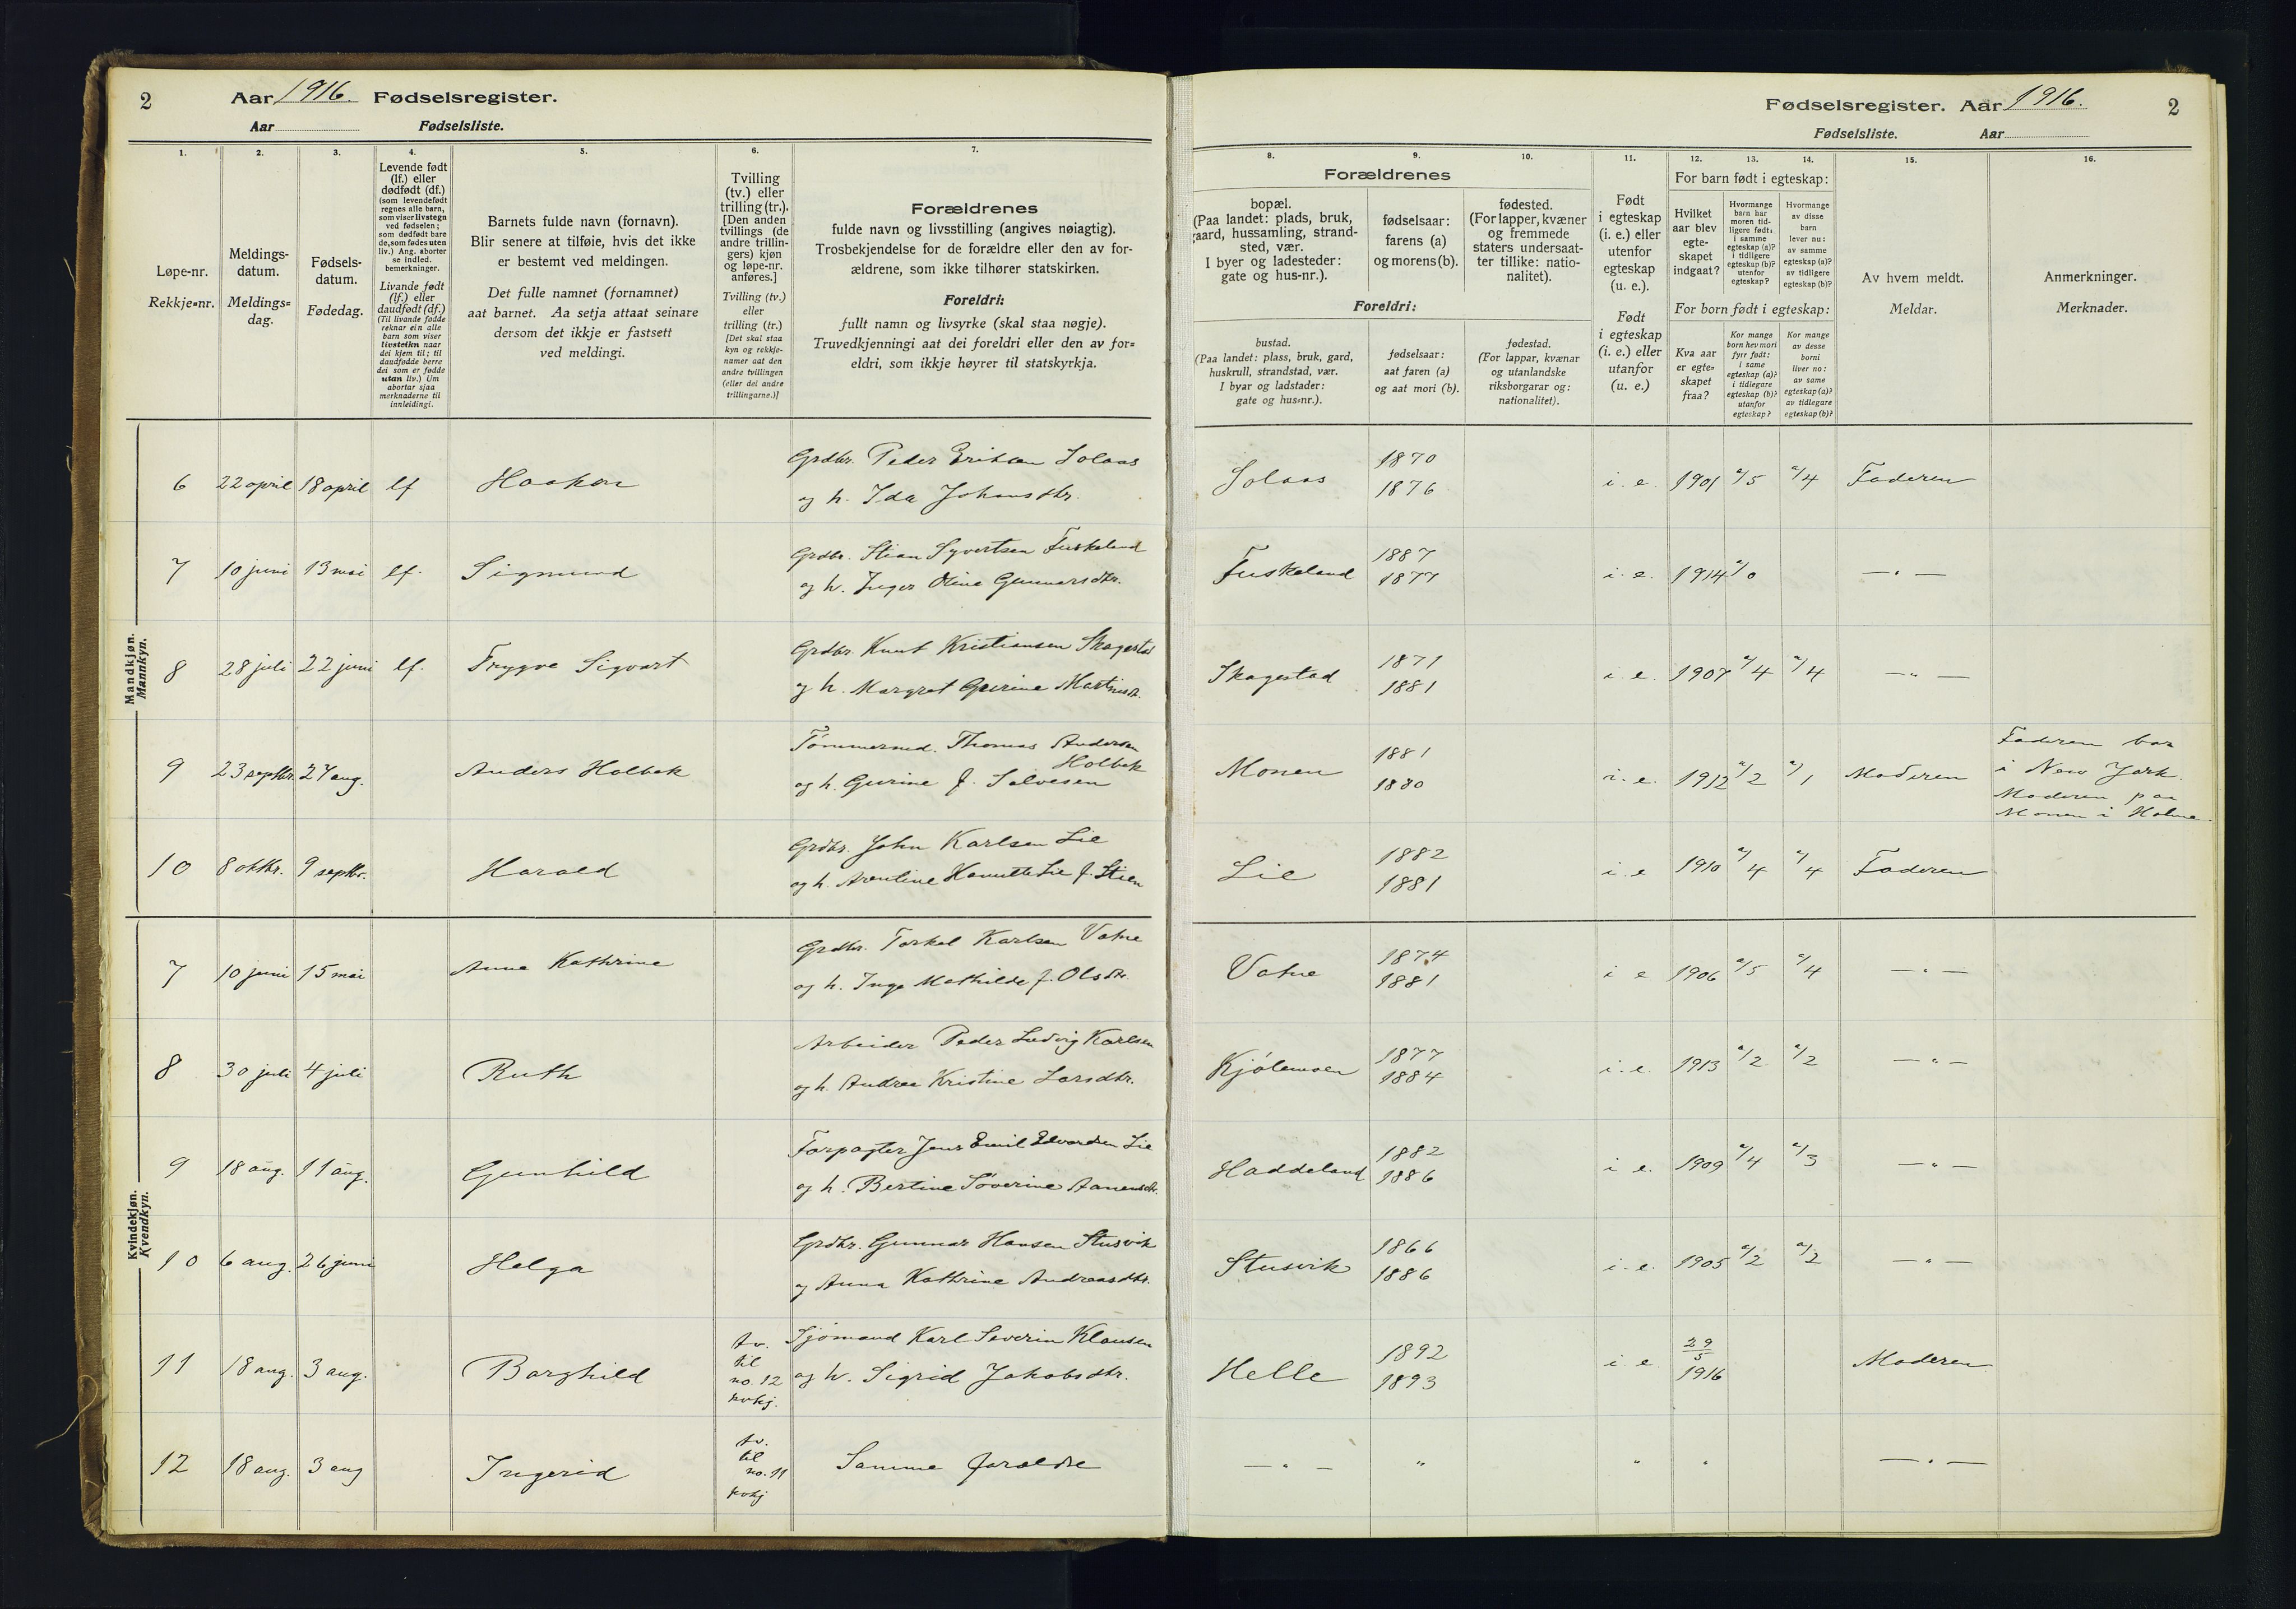 2 Aar 1916. Fødselsregister.
Aar Fødselsliste.
Fødselsregister. Aar 1916. 2
Fødselsliste. Aar
1. 2. 3. 4. 5. 6. 7.
Løpe-nr.
Rekkje=nr.
Meldings-
datum.
Meldings=
dag.
Fødsels-
datum.
Fødedag.
Levende født
(lf.) eller
dødfødt (df.)
(som levendefødt
regnes alle barn,
som viser livstegn
ved fødselen;
som dødfødt bare
de, som fødes uten
liv.) Ang. aborter
se indled.
bemerkninger.
Livande født
(lf.) eller
daudfødt (df.)
(Til livande fødde
reknar ein alle
barn som viser
livsteikn naar
dei kjem til; til
daudfødde berre
dei som er fødde
utan liv.) Um
abortar sjaa
merknaderne til
innleidingi.
Barnets fulde navn (fornavn).
Blir senere at tilføie, hvis det ikke
er bestemt ved meldingen.
Det fulle namnet (fornamnet)
aat barnet. Aa setja attaat seinare
dersom det ikkje er fastsett
ved meldingi.
Tvilling
(tv.) eller
trilling (tr.).
[Den anden
tvillings (de
andre trillin-
gers) kjøn
og løpe-nr.
anføres.]
Tvilling (tv.)
eller
trilling (tr.)
[Det skal staa
kyn og rekkje-
numer aat den
andre tvillingen
(eller dei andre
trillingarne.)]
Forældrenes
fulde navn og livsstilling (angives nøiagtig).
Trosbekjendelse for de forældre eller den av for-
ældrene, som ikke tilhører statskirken.
Foreldri:
fullt namn og livsyrke (skal staa nøgje).
Truvedkjenningi aat dei foreldri eller den av for=
eldri, som ikkje høyrer til statskyrkja.
8. 9. 10. 11. 12. 13. 14. 15. 16.
Forældrenes
bopæl.
(Paa landet: plads, bruk,
gaard, hussamling, strand-
sted, vær.
I byer og ladesteder:
gate og hus-nr.).
fødselsaar:
farens (a)
og morens (b).
fødested.
(For lapper, kvæner
og fremmede
staters undersaat-
ter tillike: natio-
nalitet).
Foreldri:
bustad.
(Paa landet: plass, bruk, gard,
huskrull, strandstad, vær.
I byar og ladstader:
gate og hus=nr.).
fødselsaar:
aat faren (a)
og aat mori (b).
fødestad.
(For lappar, kvænar
og utanlandske
riksborgarar og:
nationalitet).
Født
i egteskap
(i. e.) eller
utenfor
egteskap
(u. e.).
Født
i egteskap
(i. e.) eller
utanfor
(u. e.)
For barn født i egteskap:
Hvilket
aar blev
egte-
skapet
indgaat?
Hvormange
barn har
moren tid-
ligere født:
i samme
egteskap (a)?
i tidligere
egteskap (b)?
utenfor
egteskap?
Hvormange
av disse
barn
lever nu:
av samme
egteskap (a)?
av tidligere
egteskap (b)?
For born født i egteskap:
Kva aar
er egte=
skapet
fraa?
Kor mange
born hev mori
fyrr født:
i same
egteskap (a)?
i tidlegare
egteskap (b)?
utanfor
egteskap?
Kor mange
av desse
borni
liver no:
av same
egteskap (a)?
av tidlegare
egteskap (b)?
Av hvem meldt.
Meldar.
Anmerkninger.
Merknader.
Mandkjøn.
Mannkyn.
6 22 april 18 april lf Haakon Grdbr. Peder Eriksen Solaas
og h. Ida Johansdtr.
Solaas 1870
1876 i. e. 1901 a/5 a/4 Faderen
7 10 juni 13 mai lf. Sigmund Grdbr. Stian Syvertsen Fuskeland
og h. Inger Oline Gunnarsdtr.
Fuskeland 1887
1877 i. e. 1914 a/0 — " —
8 28 juli 22 juni lf. Trygve Sigvart Grdbr. Knut Kristiansen Skagestad
og h. Margret Gurine Martinsdt.
Skagestad 1871
1881 i. e. 1907 a/4 a/4 — " —
9 23 septbr. 27 aug. Anders Holbek Tömmermd. Thomas Andersen
Holbek
og h. Gurine f. Salvesen
Monen 1881
1880 i. e. 1912 a/2 a/1 Moderen
Faderen bor
i New York.
Moderen paa
Monen i Holme.
10 8 oktbr. 9 septbr. Harald Grdbr. John Karlsen Lie
og h. Arentine Hanutte Lie f. Stien
Lie 1882
1881 i. e 1910 a/4 a/4 Faderen
Kvindekjøn.
Kvendkyn.
7 10 juni 15 mai Anna Kathrine Grdbr. Torkel Karlsen Vatne
og h. Inga Mathilde f. Olsdtr.
Vatne 1874
1881 i e 1906 a/5 a/4 — " —
8 30 juli 4 juli Ruth Arbeider Peder Ludvig Karlsen
og h. Andrea Kristine Larsdtr.
Kjölemoen 1877
1884 i. e. 1913 a/2 a/2 — " —
9 18 aug. 11 aug. Gunhild Forpagter Jens Emil Edvardsen Lie
og h. Bertine Severine Aanensdtr.
Haddeland 1882
1886 i e. 1909 a/4 a/3 — " —
10 6 aug. 26 juni Helga Grdbr. Gunnar Hansen Stusvik
og Anna Kathrine Andreasdtr.
Stusvik 1866
1886 i. e. 1905 a/2 a/2 — " —
11 18 aug. 3 aug. Borghild tv.
til
no. 12
kvkj.
Sjömand Karl Severin Klausen
og h. Sigrid Jakobsdtr.
Helle 1892
1893 i e. 29/5
1916 Moderen
12 18 aug. 3 aug Ingerid tv.
til
no. 11
kvkj
Samme foreldre
— " — " " " — " —